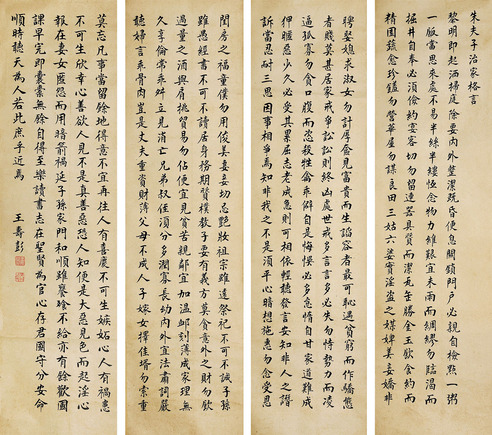 朱夫子治家格言
黎明即起洒掃庭除要內外整潔既昏便息關鎖門戶必親自檢點一粥
一飯當思來處不易半絲半縷恒念物力維艱宜未雨而綢繆勿臨渴而
掘井自奉必須儉約宴客切勿留連器具質而潔瓦缶勝金玉飲食約而
精園蔬愈珍饈勿營華屋勿謀良田三姑六婆實淫盜之媒婢美妾嬌非
聘娶媳求淑女勿計厚奩見富貴而生諂容者最可恥遇貧窮而作驕態
者賤莫甚居家戒爭訟訟則終凶處世戒多言言多必失勿恃勢力而凌
逼孤寡勿貪口腹而恣殺牲禽乖僻自是悔悞必多怠惰自甘家道難成
狎暱惡少久必受其累屈志老成急則可相依輕聽發言安知非人之譖
訴當忍耐三思因事相爭焉知非我之不是須平心暗想施惠勿念受恩
閨房之福童僕勿用俊美妻妾切忌艷妝祖宗雖遠祭祀不可不誠子孫
雖愚經書不可不讀居身務期質樸教子要有義方莫貪意外之財勿飲
過量之酒與肩挑貿易勿佔便宜見貧苦親鄰宜加溫卹刻薄成家理無
久享倫常乖舛立見消亡兄弟叔侄須分多潤寡長幼內外宜法肅詞嚴
聽婦言乖骨肉豈是丈夫重資財薄父母不成人子嫁女擇佳壻勿索重
莫忘凡事當留餘地得意不宜再往人有喜慶不可生嫉妬心人有禍患
不可生欣幸心善欲人見不是真善惡恐人知便是大惡見色而起淫心
報在妻女匿怨而用暗箭禍延子孫家門和順雖饔飧不給亦有餘歡國
課早完即囊橐無餘自得至樂讀書志在聖賢為官心存君國守分安命
順時聽天為人若此庶乎近焉
王壽彭